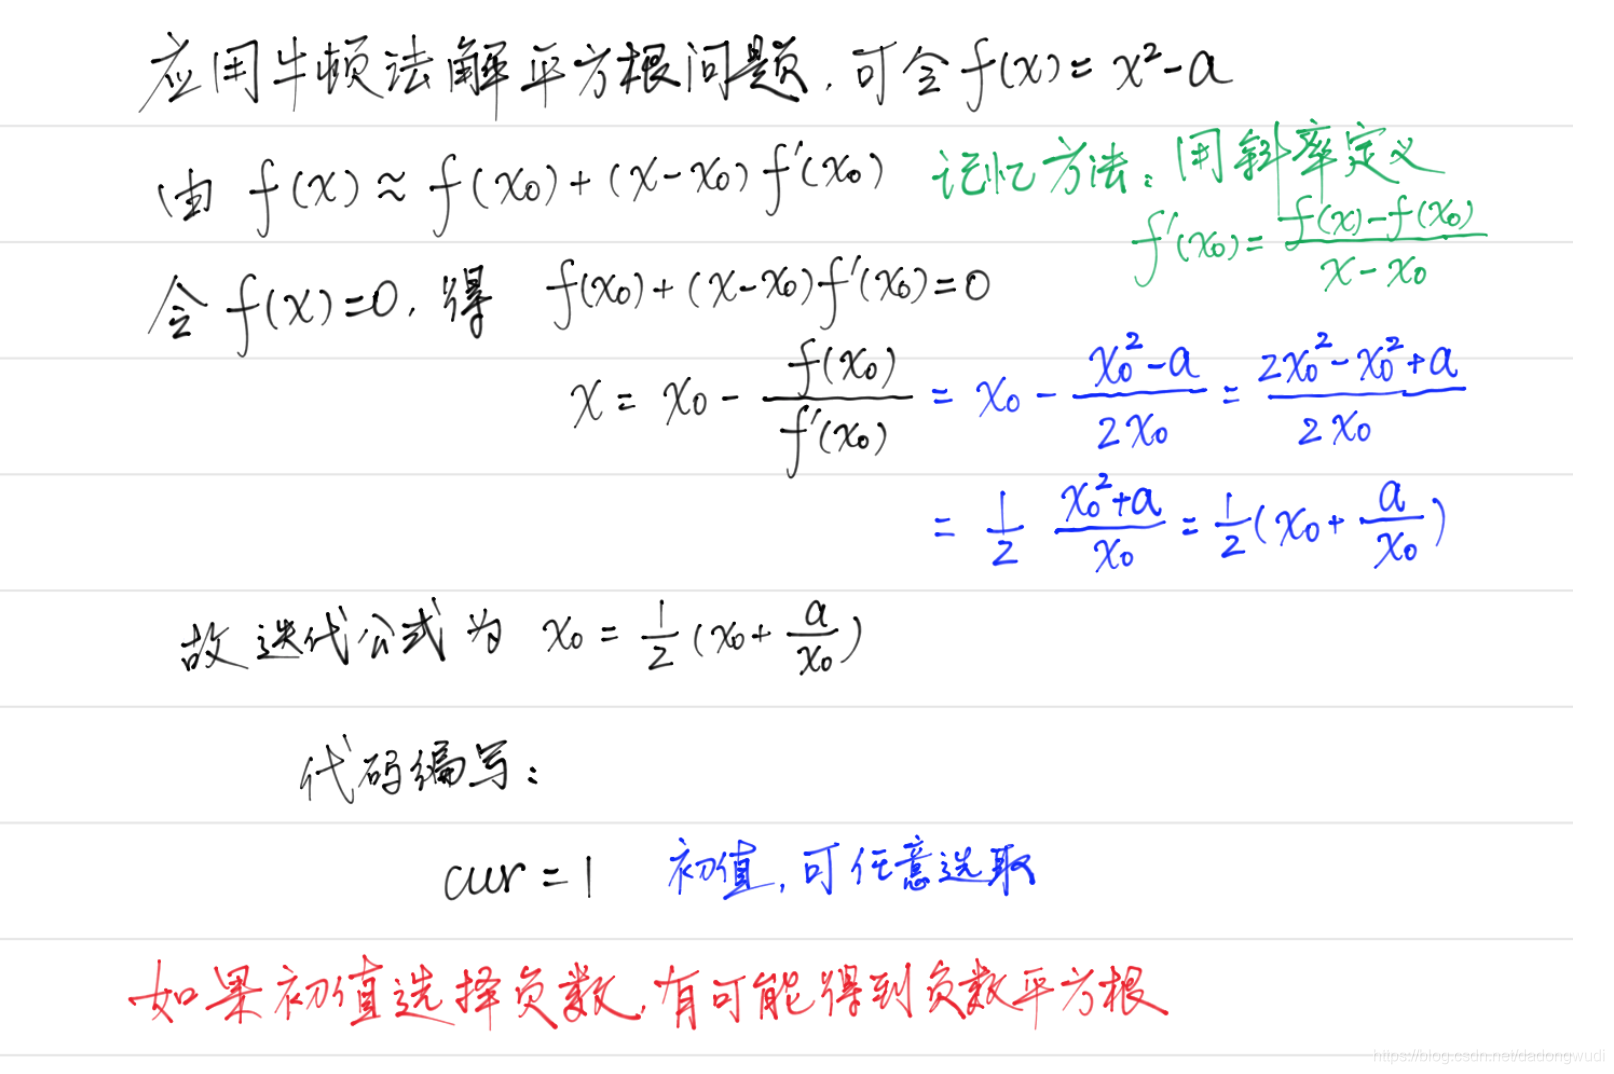 应用牛顿法解平方根问题，可令 f(x) = x² - a
由 f(x) ≈ f(x₀) + (x - x₀) f'(x₀) 记忆方法：用斜率定义
f'(x₀) = (f(x) - f(x₀)) / (x - x₀)
令 f(x) = 0，得 f(x₀) + (x - x₀) f'(x₀) = 0
x = x₀ - f(x₀) / f'(x₀) = x₀ - (x₀² - a) / (2x₀) = (2x₀² - x₀² + a) / (2x₀)
= 1/2 (x₀² + a) / x₀ = 1/2 (x₀ + a/x₀)
故迭代公式为 x₀ = 1/2 (x₀ + a/x₀)
代码编写：
cur = 1 初值，可任意选取
如果初值选择负数，有可能得到负数平方根
https://blog.csdn.net/dadongwudi